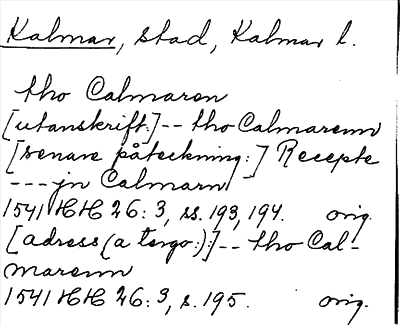 Kalmar, stad, Kalmar l.
tho Calmaren
[utanskrift:]-- tho Calmarenn
[senare påteckning:] Recepte
---jn Calmarn
1541 HH 26:3, ss. 193, 194. orig.
[adress (a tergo:):]-- tho Cal-
marenn
1541 HH 26:3, s. 195. orig.